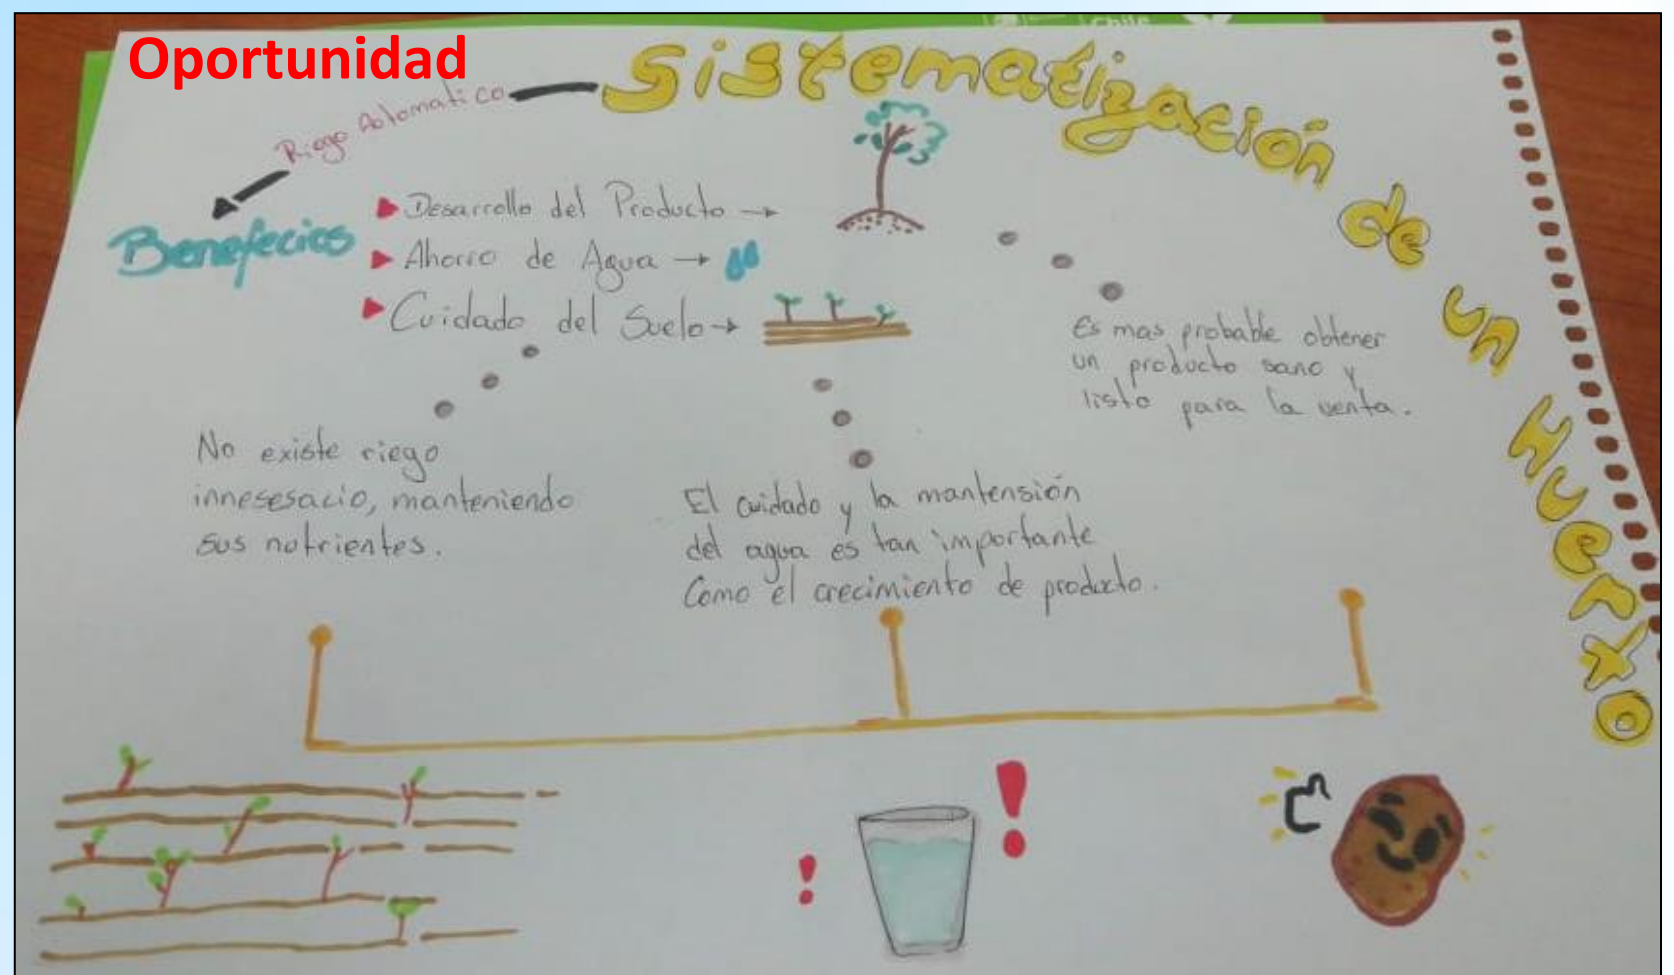 Oportunidad
Chile
Sistematización de un Huerto
Riego Aotomatico
Benefecios
Desarrollo del Producto →
Ahorro de Agua →
Cuidado del Suelo →
Es mas probable obtener
un producto sano y
listo para la venta.
No existe riego
innesesacio, manteniendo
sus notrientes.
El cuidado y la mantensión
del agua es tan importante
Como el crecimiento de producto.
! !